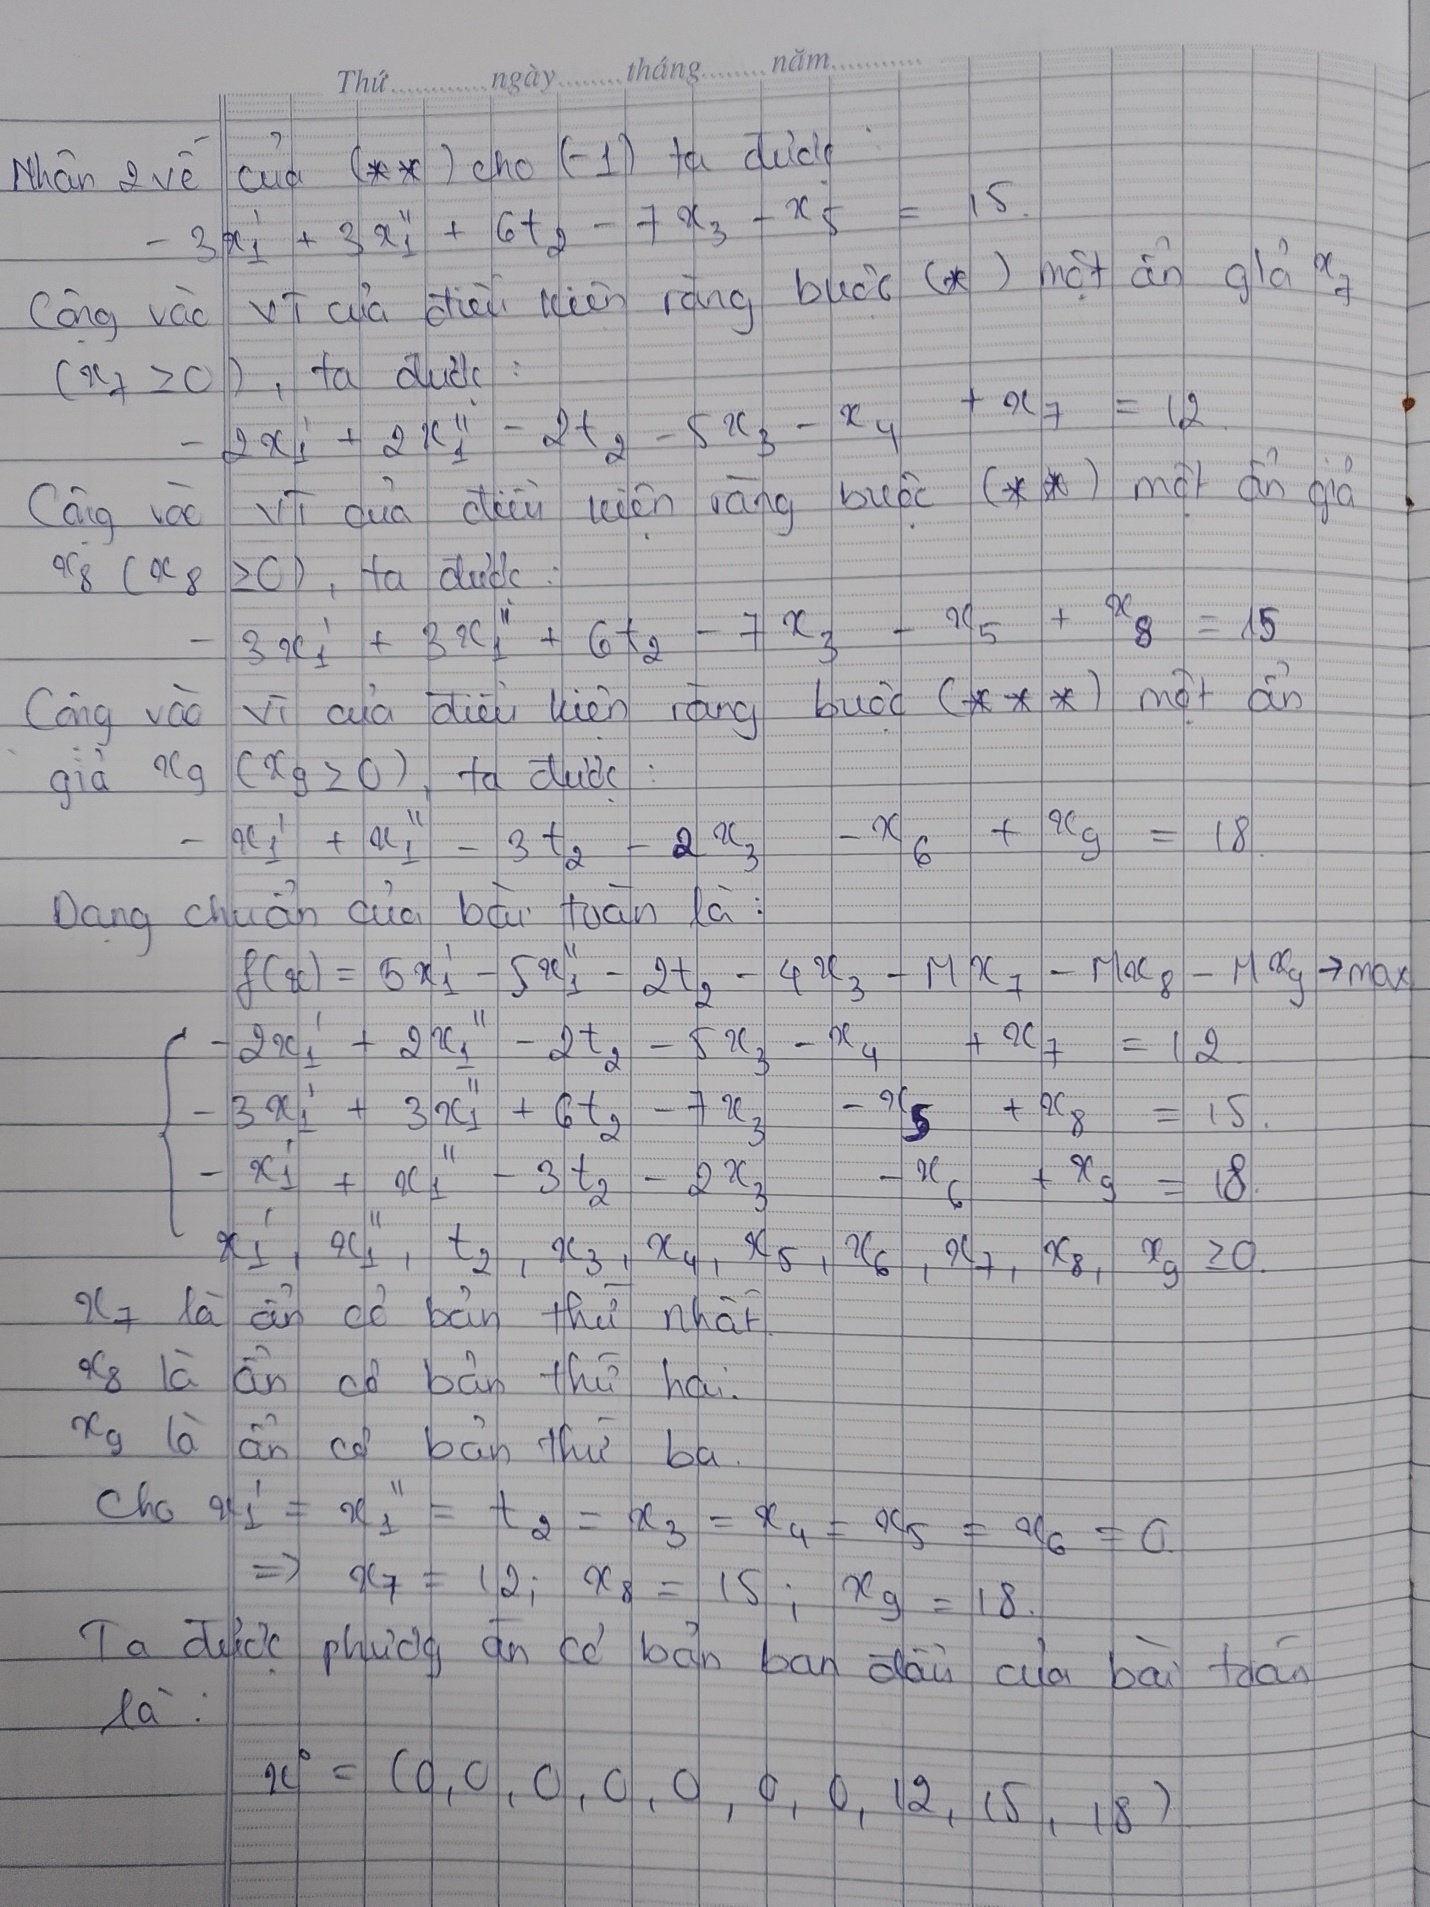 Thứ............ngày........tháng........năm............
Nhân 2 vế của (**) cho (-1) ta được
- 3x₁' + 3x₁'' + 6t₂ - 7x₃ - x₅ = 15.
Cộng vào VT của điều kiện ràng buộc (*) một ẩn giả x₇
(x₇ ≥ 0), ta được :
- 2x₁' + 2x₁'' - 2t₂ - 5x₃ - x₄ + x₇ = 12.
Cộng vào VT của điều kiện ràng buộc (**) một ẩn giả
x₈ (x₈ ≥ 0), ta được :
- 3x₁' + 3x₁'' + 6t₂ - 7x₃ - x₅ + x₈ = 15
Cộng vào VT của điều kiện ràng buộc (***) một ẩn
giả x₉ (x₉ ≥ 0), ta được :
- x₁' + x₁'' - 3t₂ - 2x₃ - x₆ + x₉ = 18.
Dạng chuẩn của bài toán là :
f(x) = 5x₁' - 5x₁'' - 2t₂ - 4x₃ - Mx₇ - Mx₈ - Mx₉ → max
- 2x₁' + 2x₁'' - 2t₂ - 5x₃ - x₄ + x₇ = 12.
- 3x₁' + 3x₁'' + 6t₂ - 7x₃ - x₅ + x₈ = 15.
- x₁' + x₁'' - 3t₂ - 2x₃ - x₆ + x₉ = 18.
x₁', x₁'', t₂, x₃, x₄, x₅, x₆, x₇, x₈, x₉ ≥ 0.
x₇ là ẩn cơ bản thứ nhất.
x₈ là ẩn cơ bản thứ hai.
x₉ là ẩn cơ bản thứ ba.
Cho x₁' = x₁'' = t₂ = x₃ = x₄ = x₅ = x₆ = 0.
=> x₇ = 12; x₈ = 15; x₉ = 18.
Ta được phương án cơ bản ban đầu của bài toán
là :
x⁰ = (0, 0, 0, 0, 0, 0, 0, 12, 15, 18)